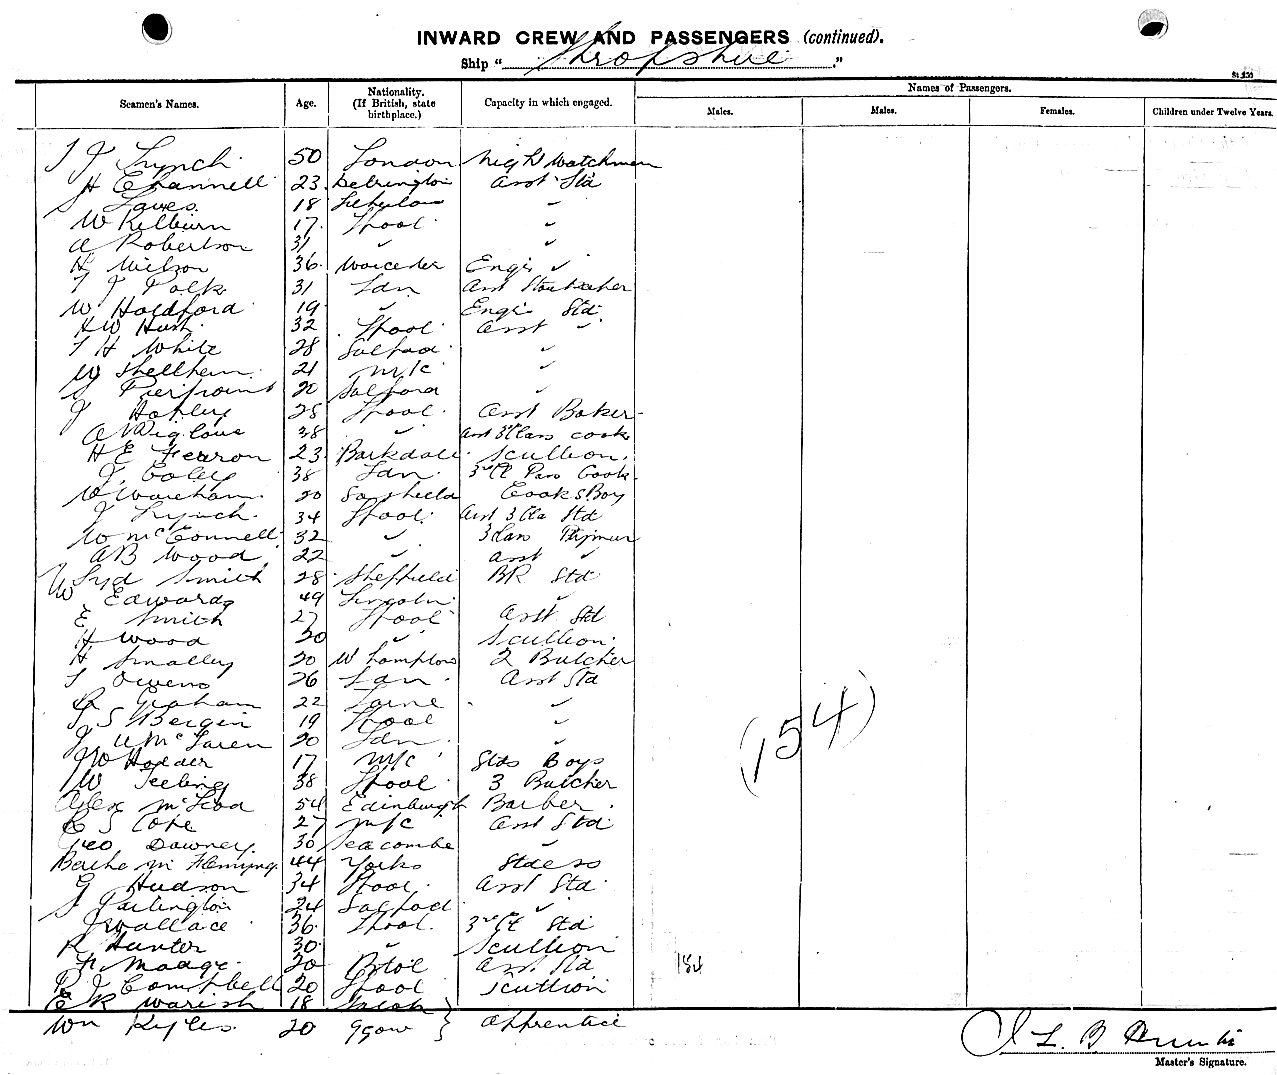 INWARD CREW AND PASSENGERS (continued).
Ship "Shropshire"
Seamen's Names. Age. Nationality. (If British, state birthplace.) Capacity in which engaged. Names of Passengers.
Males. Males. Females. Children under Twelve Years.
T J Lynch 50 London Night Watchman
H Channell 23 Asst Std
Laves 18 "
W Kilburn 17 Lpool "
A Robertson 31 " "
H Wilson 36 Worcester Engrs "
T J Polk 31 Ldn Asst Storekeeper
W Holdford 19 " Engrs Std
H W Hush 32 Lpool Asst "
T H White 28 Salford "
W Shellham 21 M/c "
Pierpoint 20 Salford "
J Hopley 28 Lpool Asst Baker
A Wiglove 38 " Asst 3rd Class cook
H E Fearon 23 Barkdale Scullion
J. Coley 38 Ldn 3rd Cl Pass Cook
W Wareham 20 So. Shields Cooks Boy
J Lynch 34 Lpool Asst 3 Cla Std
W McConnell 32 " 3 Class
A B Wood 22 " Asst "
Syd Smith 28 Sheffield BR Std
W Edwards 49 Lincoln "
E Smith 27 Lpool Asst Std
H Wood 30 " Scullion
H Smalley 20 W hampton 2 Butcher
T Owens 26 Ldn Asst Std
Graham 22 Larne "
J S Bergin 19 Lpool "
J A McLaren 20 Ldn "
J W Hodder 17 M/c Stds Boys
W Feeling 38 Lpool 3 Butcher
Alex McLeod 54 Edinburgh Barber
C S Cope 27 M/c Asst Std
Geo Downey 30 Seacombe "
Bertha M Flemyng 44 Yorks Stdess
G Hudson 34 Lpool Asst Std
J Tarlington 24 Salford "
J Wallace 36 Lpool 3rd Cl Std
R Hunter 30 " Scullion
F Madge 20 Btol Asst Std
R J Campbell 20 Lpool Scullion
E R Warish 18
Wm Kyles 20 Ggow } Apprentice
(154)
154
Master's Signature.